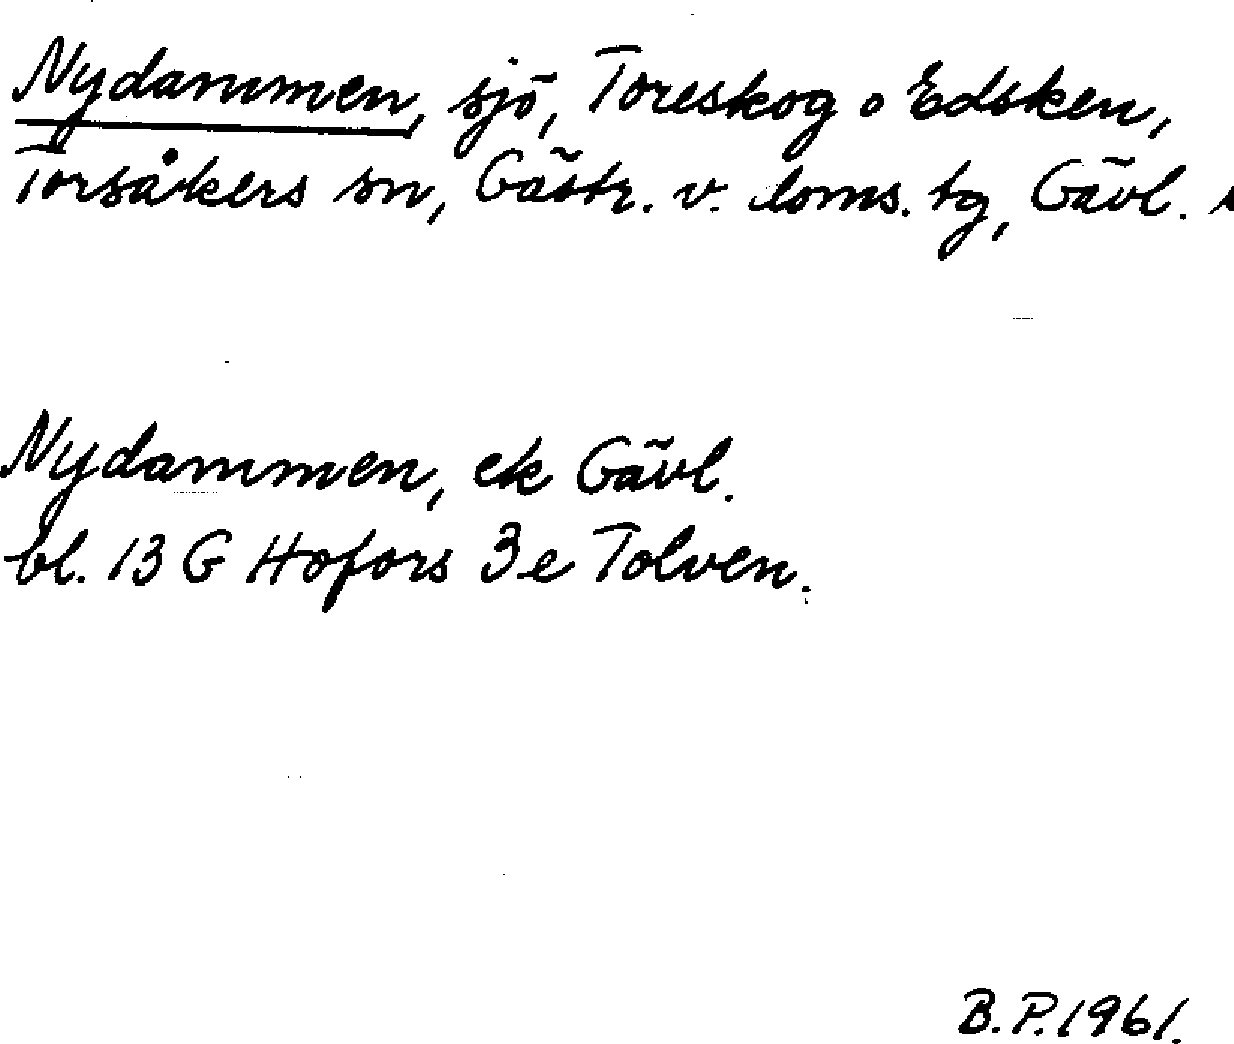 Nydammen, sjö, Toreskog o Edsken,
Torsåkers sn, Gästr. v. doms. tg, Gävl.
Nydammen, ek Gävl.
bl. 13 G Hofors 3e Tolven.
B.P. 1961.